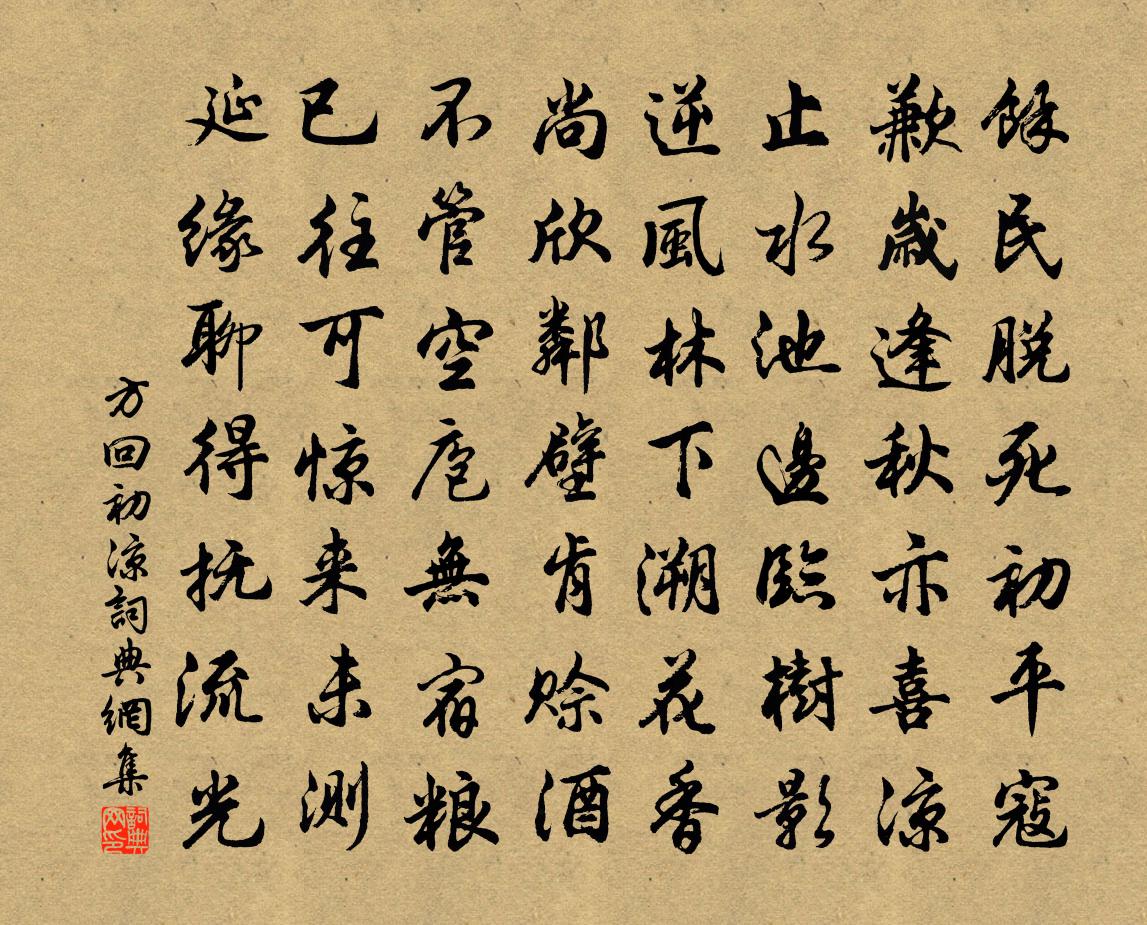 餘民脱死初平寇
歉歲逢秋亦喜涼
止水池邊臨樹影
逆風林下溯花香
尚欣鄰壁肯赊酒
不管空庖無宿粮
已往可惊来未测
延缘聊得抚流光
方回初涼詞典網集
詞典网印